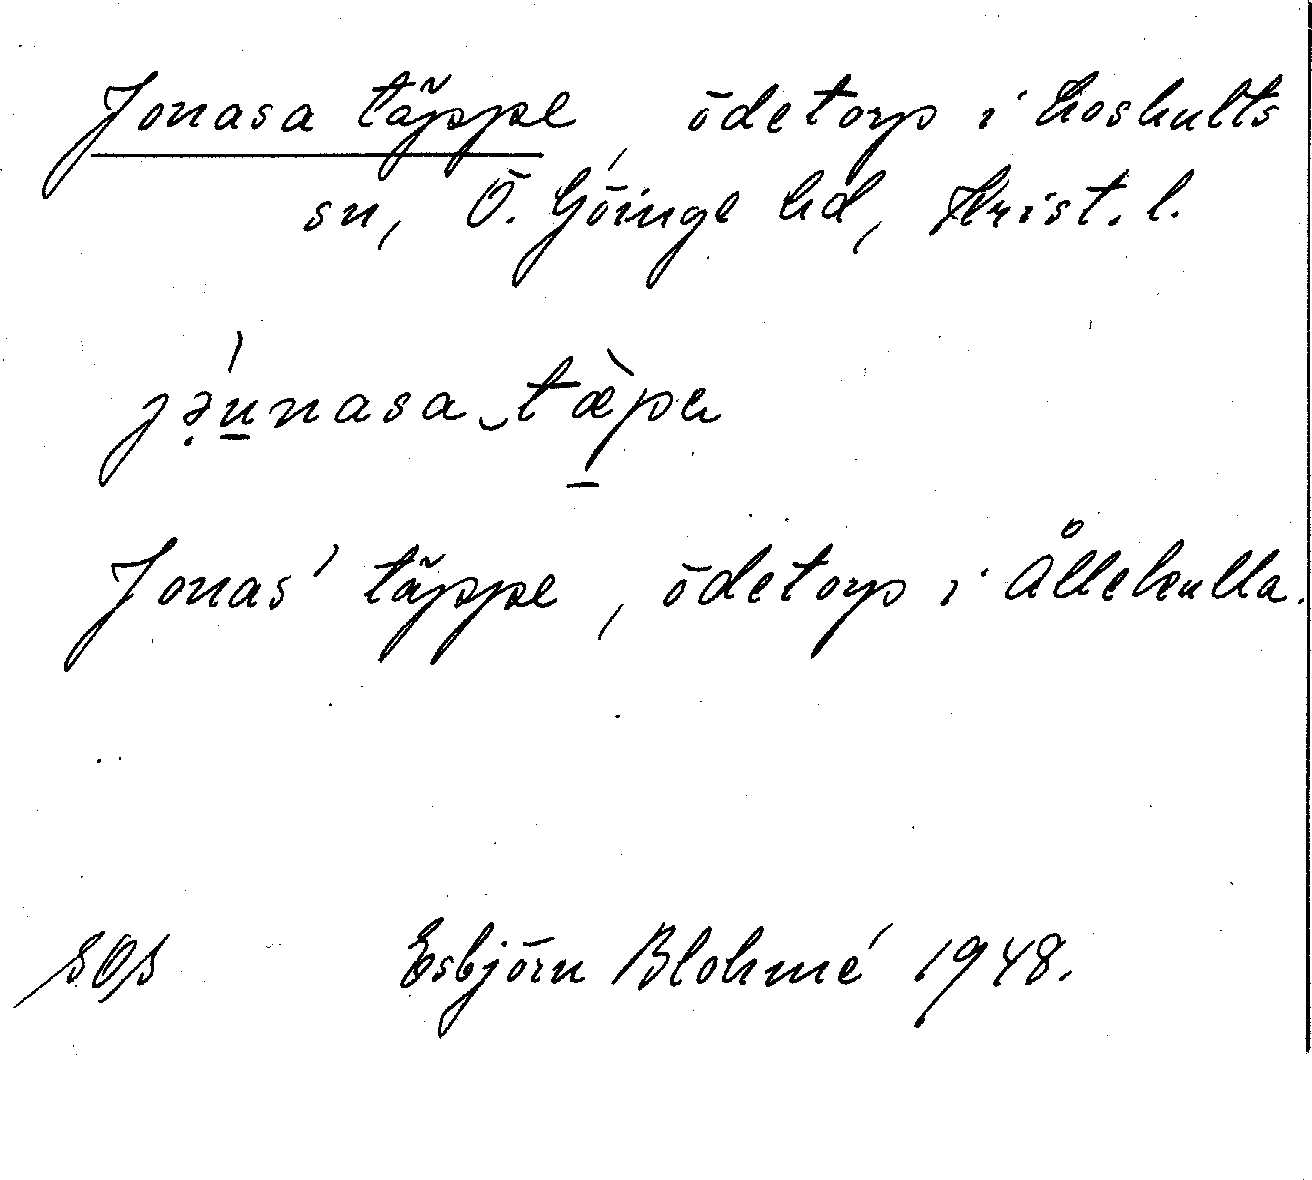 Jonasa täppe, ödetorp i Loshults
sn, Ö. Göinge hd, Krist. l.
jə̣́u̲nasa‿tæ̲̀pa
Jonas' täppe, ödetorp i Ållekulla.
SOS Esbjörn Blohmé 1948.